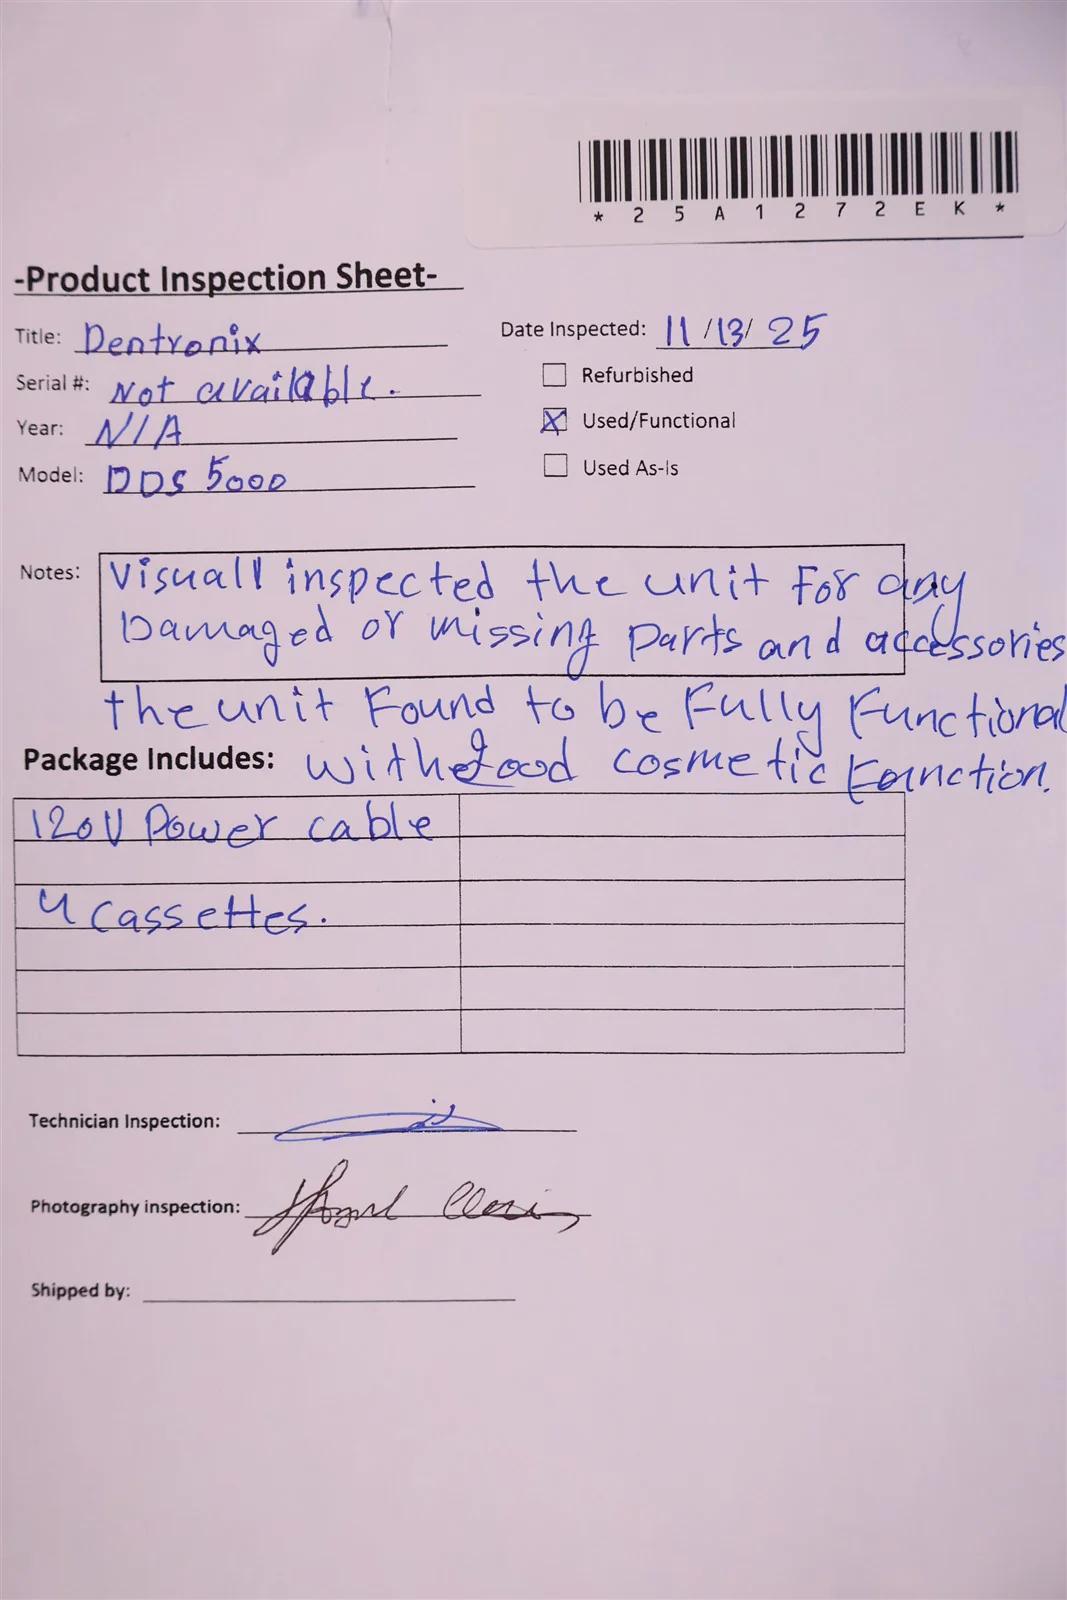 *25A1272EK*
-Product Inspection Sheet-
Title: Dentronix
Date Inspected: 11/13/25
Serial #: Not available.
Refurbished
Year: N/A
Used/Functional
Model: DDS 5000
Used As-Is
Notes: Visuall inspected the unit For any
Damaged or missing parts and accessories
the unit Found to be Fully Functional
Package Includes: with good cosmetic Function.
120V Power cable
4 Cassettes.
Technician Inspection:
Photography inspection:
Shipped by: